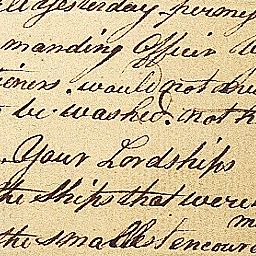 Yesterday
manding Officer
would not
be washed. not
Your Lordships
the Ships that were
the smallest encour